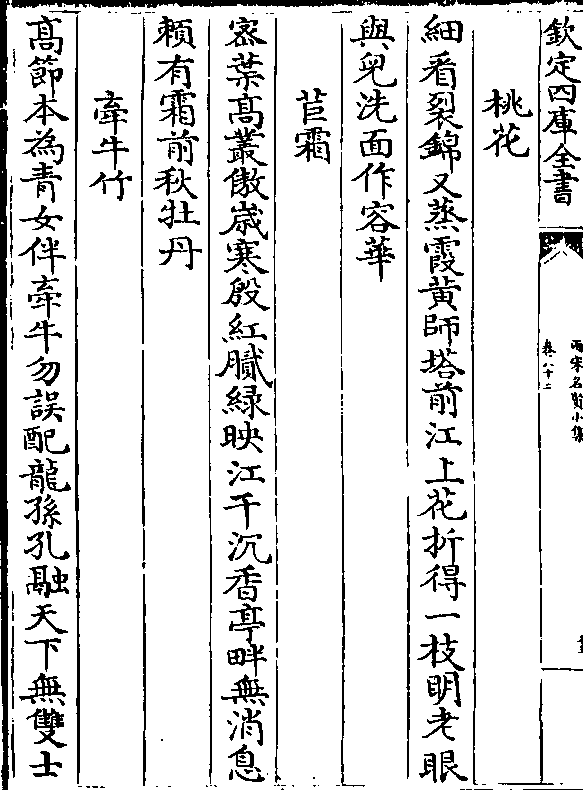 欽定四庫全書
兩宋名賢小集
卷八十二
桃花
細看裂錦又蒸霞黄師塔前江上花折得一枝明老眼
與兒洗面作容華
苣霜
宻葉髙叢傲嵗寒殷紅膩緑映江干沉香亭畔無消息
頼有霜前秋牡丹
牽牛竹
髙節本為青女伴牽牛勿誤配龍孫孔融天下無雙士